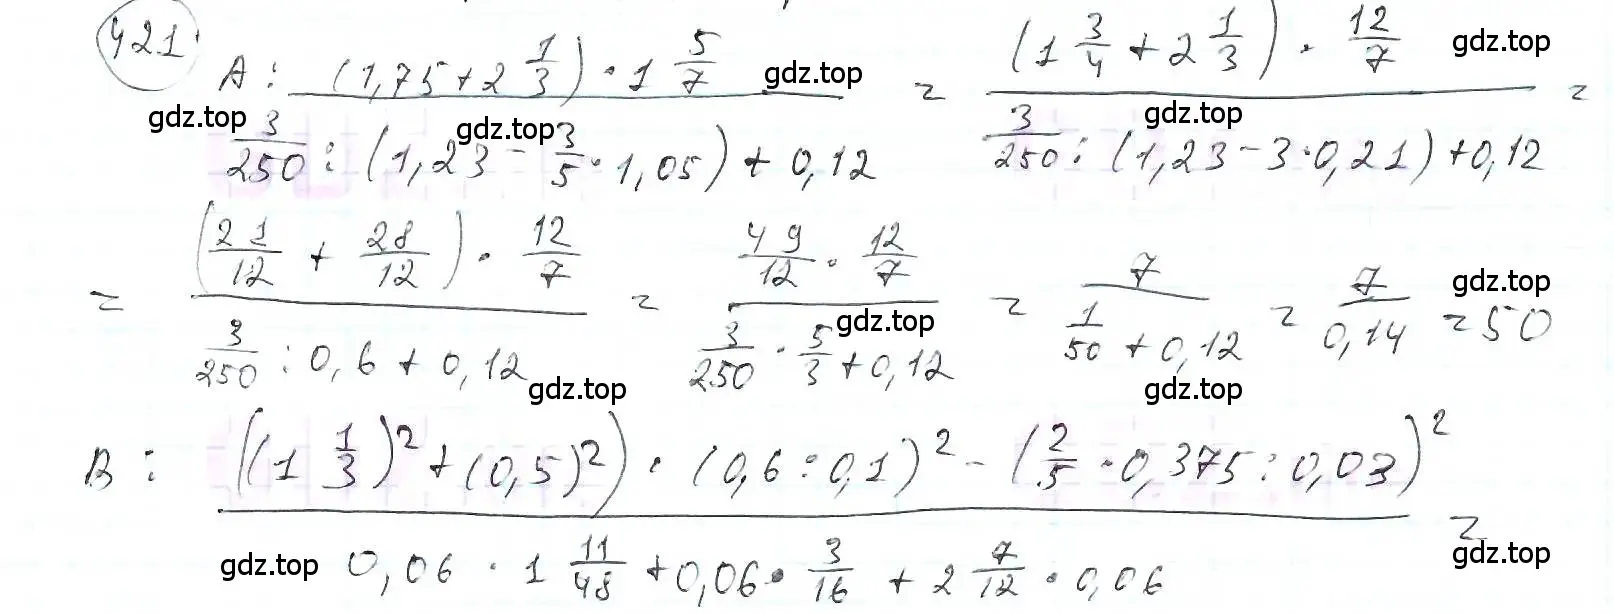 421
A: ((1,75 + 2 1/3) · 1 5/7) / (3/250 : (1,23 - 3/5 · 1,05) + 0,12) = ((1 3/4 + 2 1/3) · 12/7) / (3/250 : (1,23 - 3 · 0,21) + 0,12) =
= ((21/12 + 28/12) · 12/7) / (3/250 : 0,6 + 0,12) = (49/12 · 12/7) / (3/250 · 5/3 + 0,12) = 7 / (1/50 + 0,12) = 7/0,14 = 50
B: (((1 1/3)² + (0,5)²) · (0,6 : 0,1)² - (2/5 · 0,375 : 0,03)²) / (0,06 · 1 11/48 + 0,06 · 3/16 + 2 7/12 · 0,06) =
gdz.top
gdz.top
gdz.top
gdz.top
gdz.top
gdz.top
gdz.top
gdz.top
gdz.top
gdz.top
gdz.top